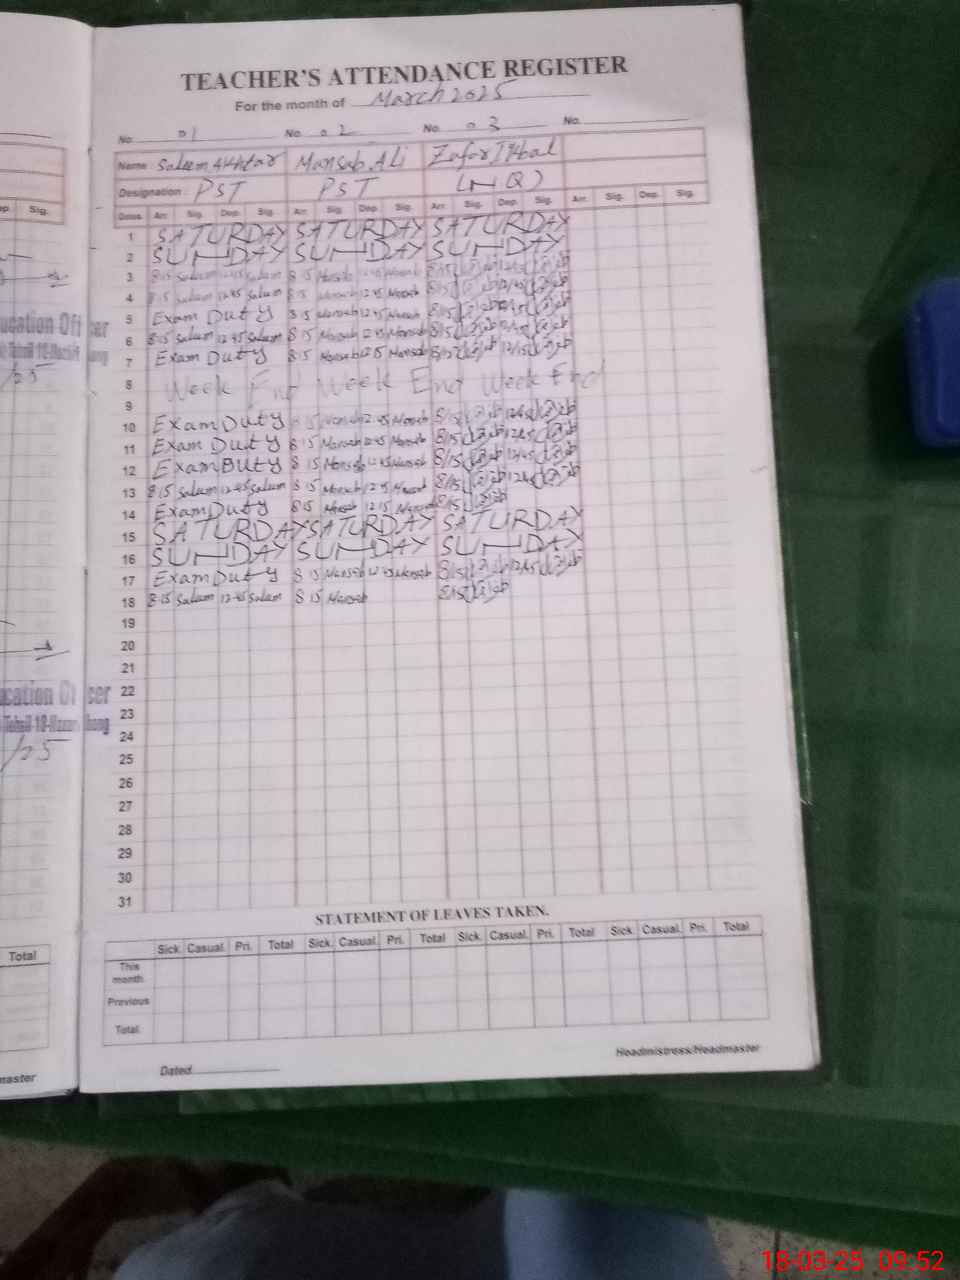 TEACHER'S ATTENDANCE REGISTER
For the month of March 2025
No. 01 No. 02 No. 03 No.
Name Saleem Akhtar Mansab Ali Zafar Iqbal
Designation: PST PST (NQ)
Dates Arr. Sig. Dep. Sig. Arr. Sig. Dep. Sig. Arr. Sig. Dep. Sig. Arr. Sig. Dep. Sig.
1 SATURDAY SATURDAY SATURDAY
2 SUNDAY SUNDAY SUNDAY
3 8:15 Salam 12:45 Salam 8:15 Mansab 12:45 Mansab 8/15 12/45
4 8:15 Salam 12:45 Salam 8:15 Mansab 12:45 Mansab 8/15 12/45
5 Exam Duty 8:15 Mansab 12:45 Mansab 8/15 12/45
6 8:15 Salam 12:45 Salam 8:15 Mansab 12:45 Mansab 8/15 12/45
7 Exam Duty 8:15 Mansab 12:15 Mansab 8/15 12/15
8 Week End Week End Week End
9
10 Exam Duty 8:15 Mansab 12:45 Mansab 8/15 12/45
11 Exam Duty 8:15 Mansab 12:45 Mansab 8/15 12/45
12 Exam Duty 8:15 Mansab 12:45 Mansab 8/15 12/45
13 8:15 Salam 12:45 Salam 8:15 Mansab 12:45 Mansab 8/15 12/45
14 Exam Duty 8:15 Mansab 12:15 Mansab 8/15
15 SATURDAY SATURDAY SATURDAY
16 SUNDAY SUNDAY SUNDAY
17 Exam Duty 8:15 Mansab 12:45 Mansab 8/15 12/45
18 8:15 Salam 12:45 Salam 8:15 Mansab 8/15
19
20
21
22
23
24
25
26
27
28
29
30
31
STATEMENT OF LEAVES TAKEN.
Sick. Casual. Pri. Total Sick. Casual. Pri. Total Sick. Casual. Pri. Total Sick. Casual. Pri. Total
This month
Previous
Total
Headmistress/Headmaster
Dated
Sig.
ucation Officer
/25
cation Officer
/25
Total
master
18-03-25 09:52